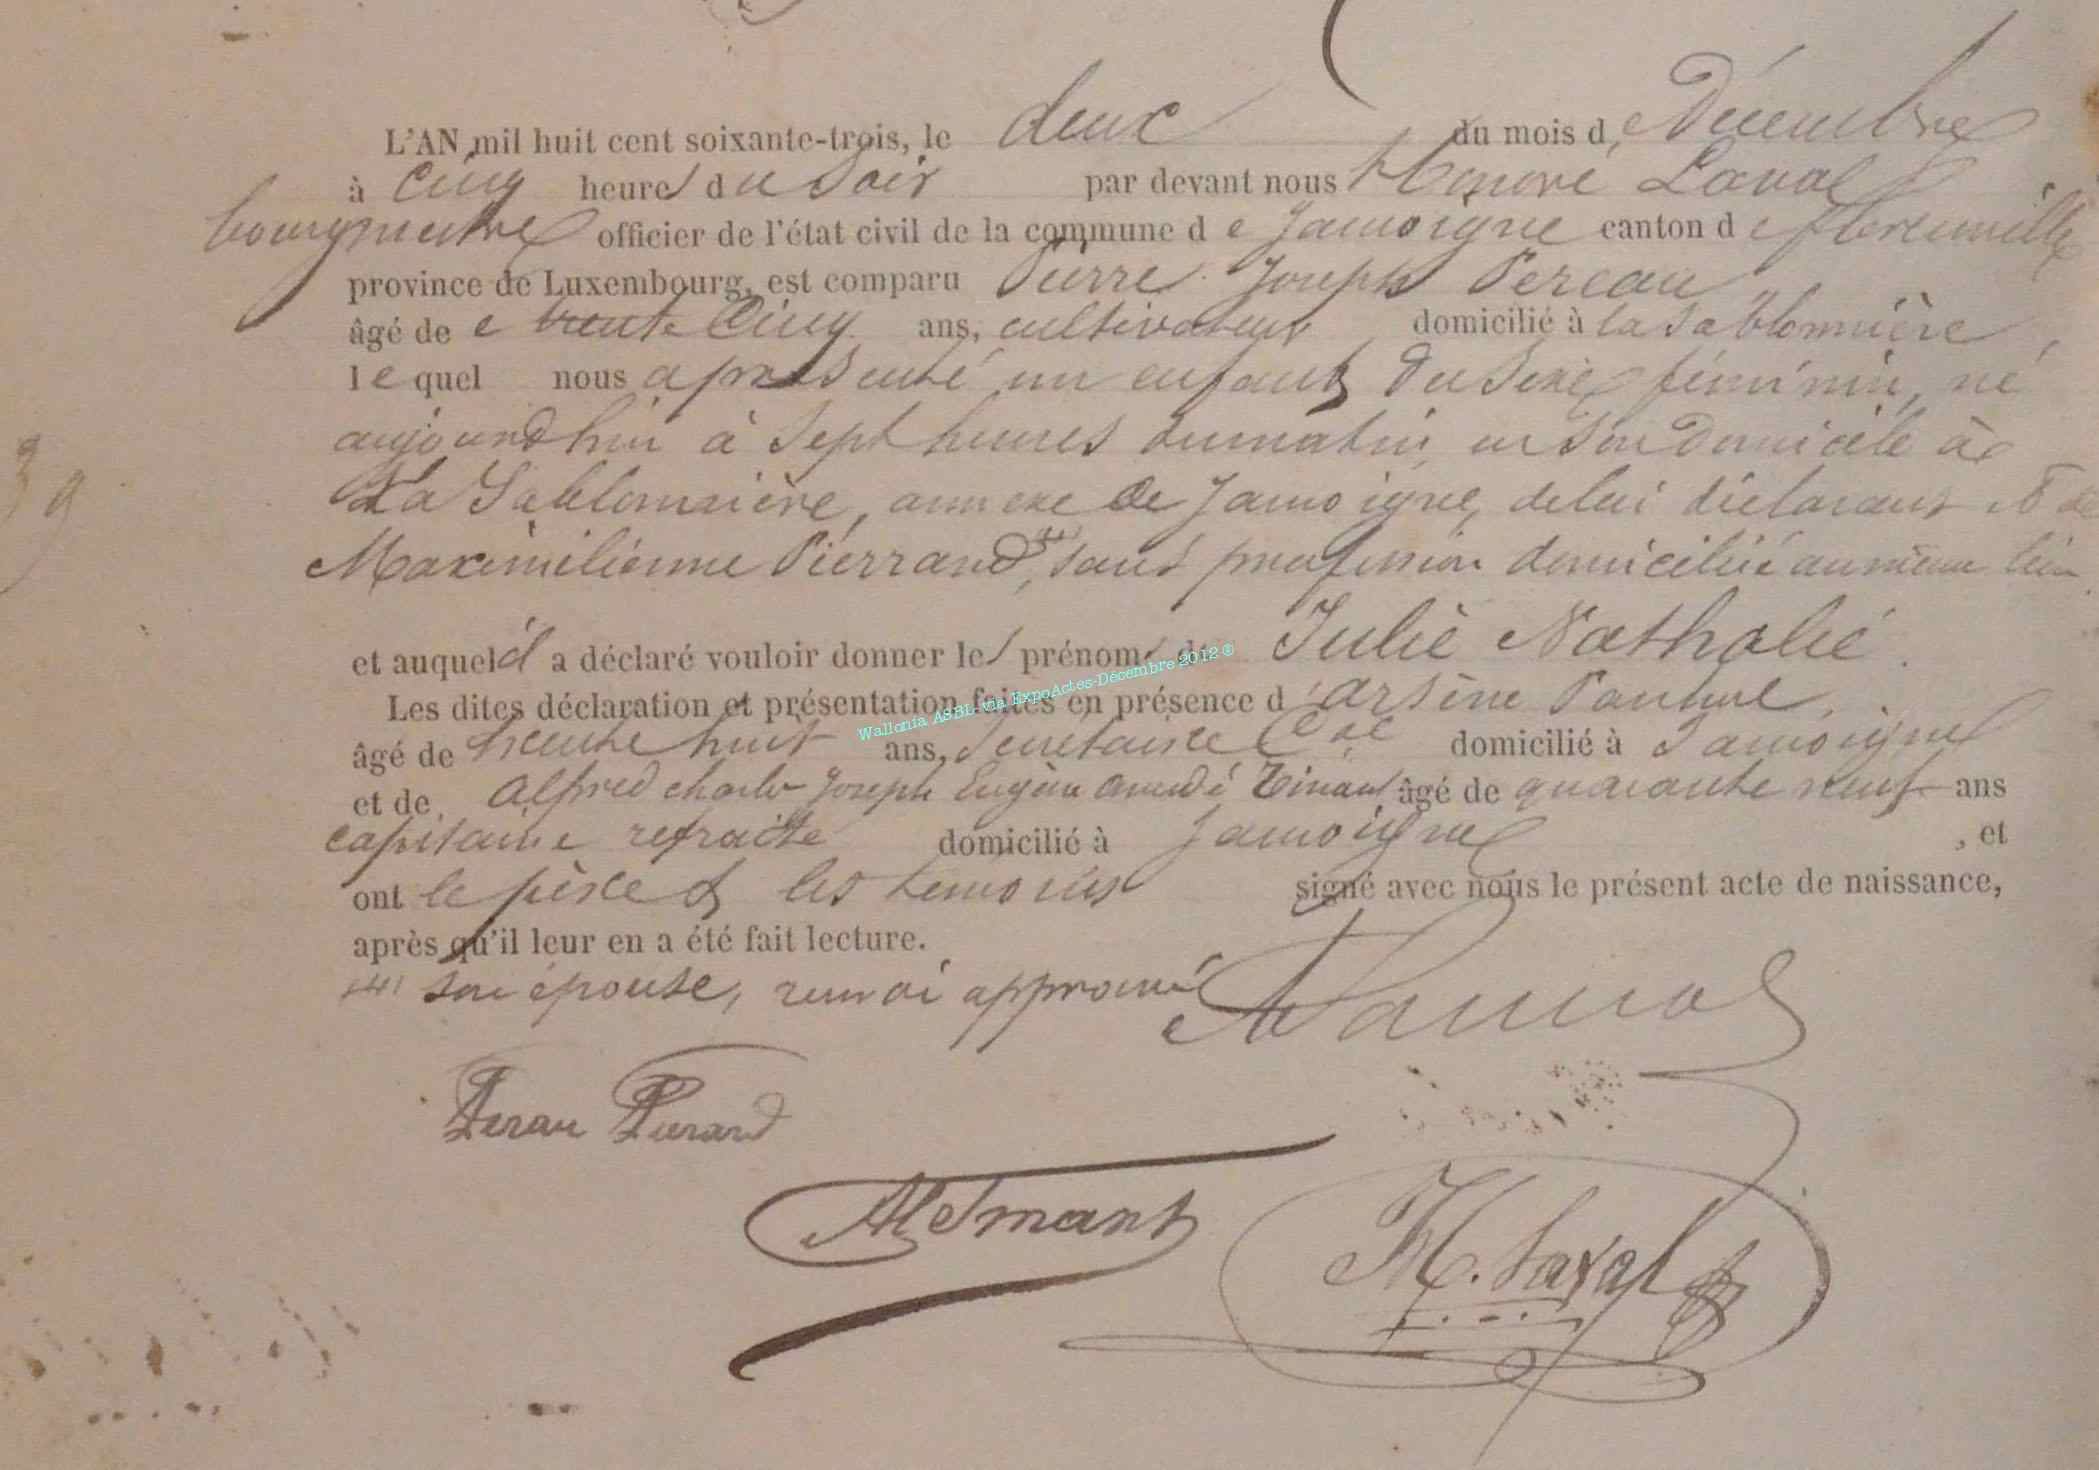 L'AN mil huit cent soixante-trois, le deux du mois de Décembre
à cinq heures du soir par devant nous Honoré Laval
bourgmestre officier de l'état civil de la commune de Jamoigne canton de florenville
province de Luxembourg, est comparu Pierre Joseph Pereau
âgé de trente cinq ans, cultivateur domicilié à la sablonnière,
lequel nous a présenté un enfant du sexe féminin, né
aujourd'hui à sept heures du matin en son domicile à
La Sablonnière, annexe de Jamoigne, de lui déclarant & de
Maximilienne Pierrard, (+) sans profession domiciliée au même lieu
39
et auquel il a déclaré vouloir donner les prénoms de Julie Nathalie.
Les dites déclaration et présentation faites en présence d'arsène
âgé de trente huit ans, Secrétaire Cal domicilié à Jamoigne
et de alfred charles Joseph Eugène amédé Tinant âgé de quarante neuf ans
capitaine retraité domicilié à Jamoigne, et
ont le père & les témoins signé avec nous le présent acte de naissance,
après qu'il leur en a été fait lecture.
(+) son épouse, renvoi approuvé
Perau Pierard
H. Laval
Wallonia ASBL-via ExpoActes-Décembre 2012 ®